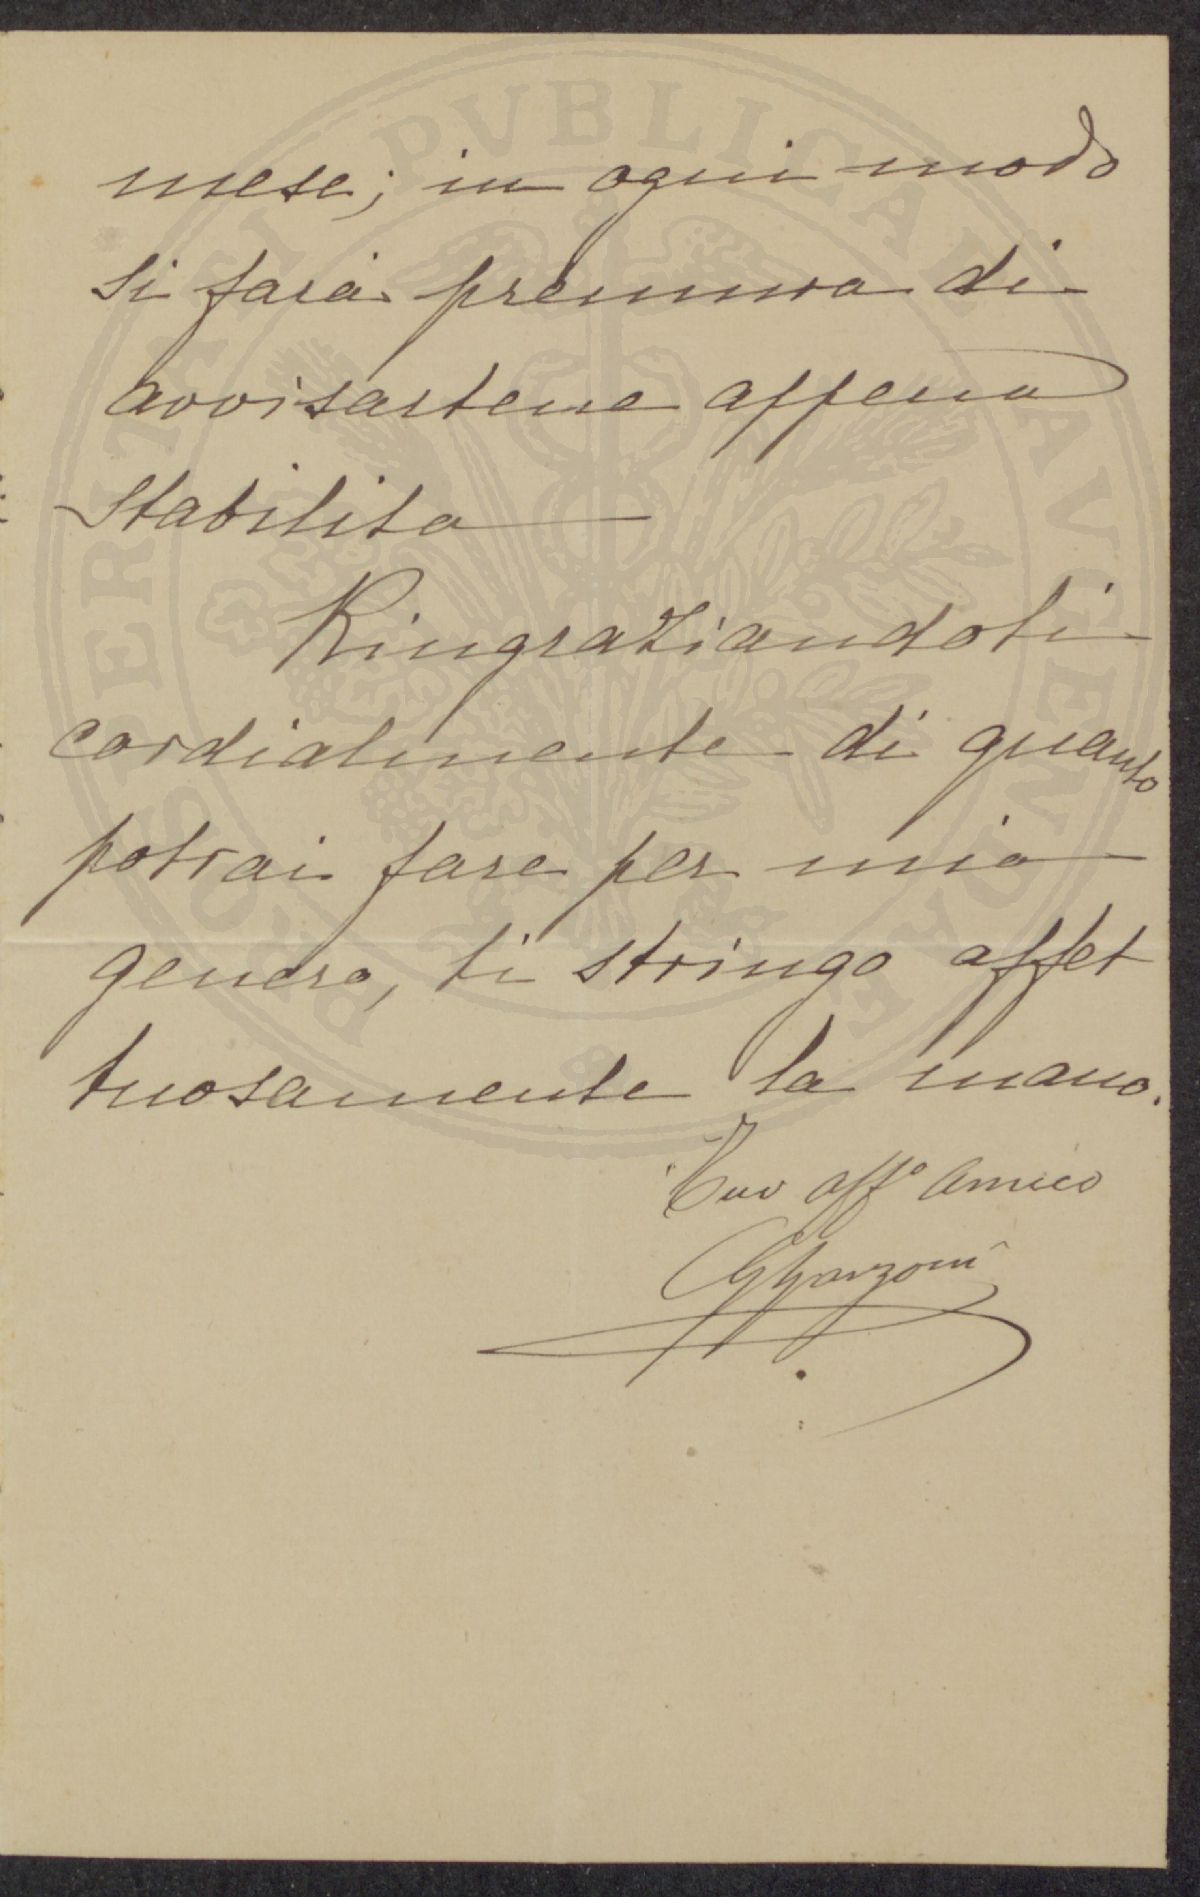 mese; in ogni modo
si farà premura di
avvisartene appena
stabilita
Ringraziandoti
cordialmente di quanto
potrai fare per mio
genero, ti stringo affet
tuosamente la mano.
Tuo affº amico
GGarzoni
PROSPERITATI PVBLICAE AVGENDAE